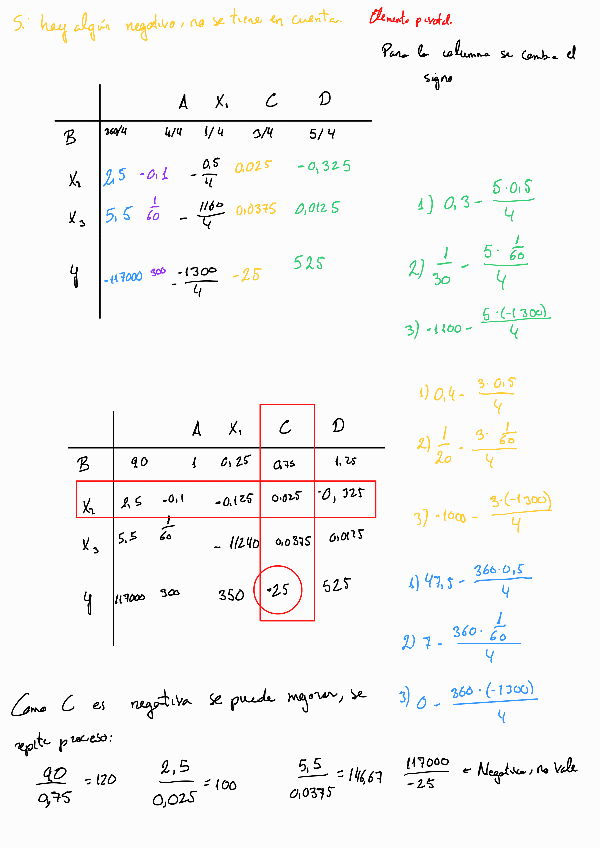 Si hay algún negativo, no se tiene en cuenta. Elemento pivotal.
Para la columna se cambia el
signo
A X₁ C D
B 360/4 4/4 1/4 3/4 5/4
X₂ 2,5 -0,1 -0,5/4 0,025 -0,325
X₃ 5,5 1/60 -1160/4 0,0375 0,0125
y -117000 300 -1300/4 -25 525
1) 0,3 - 5·0,5/4
2) 1/30 - 5·1/60/4
3) -1100 - 5·(-1300)/4
1) 0,4 - 3·0,5/4
2) 1/20 - 3·1/60/4
3) -1000 - 3·(-1300)/4
1) 47,5 - 360·0,5/4
2) 7 - 360·1/60/4
3) 0 - 360·(-1300)/4
A X₁ C D
B 90 1 0,25 0,75 1,25
X₂ 2,5 -0,1 -0,125 0,025 -0,325
X₃ 5,5 1/60 -1/240 0,0375 0,0125
y 117000 300 350 -25 525
Como C es negativa se puede mejorar, se
repite proceso:
90/0,75 = 120 2,5/0,025 = 100 5,5/0,0375 = 146,67 117000/-25 = Negativo, no vale